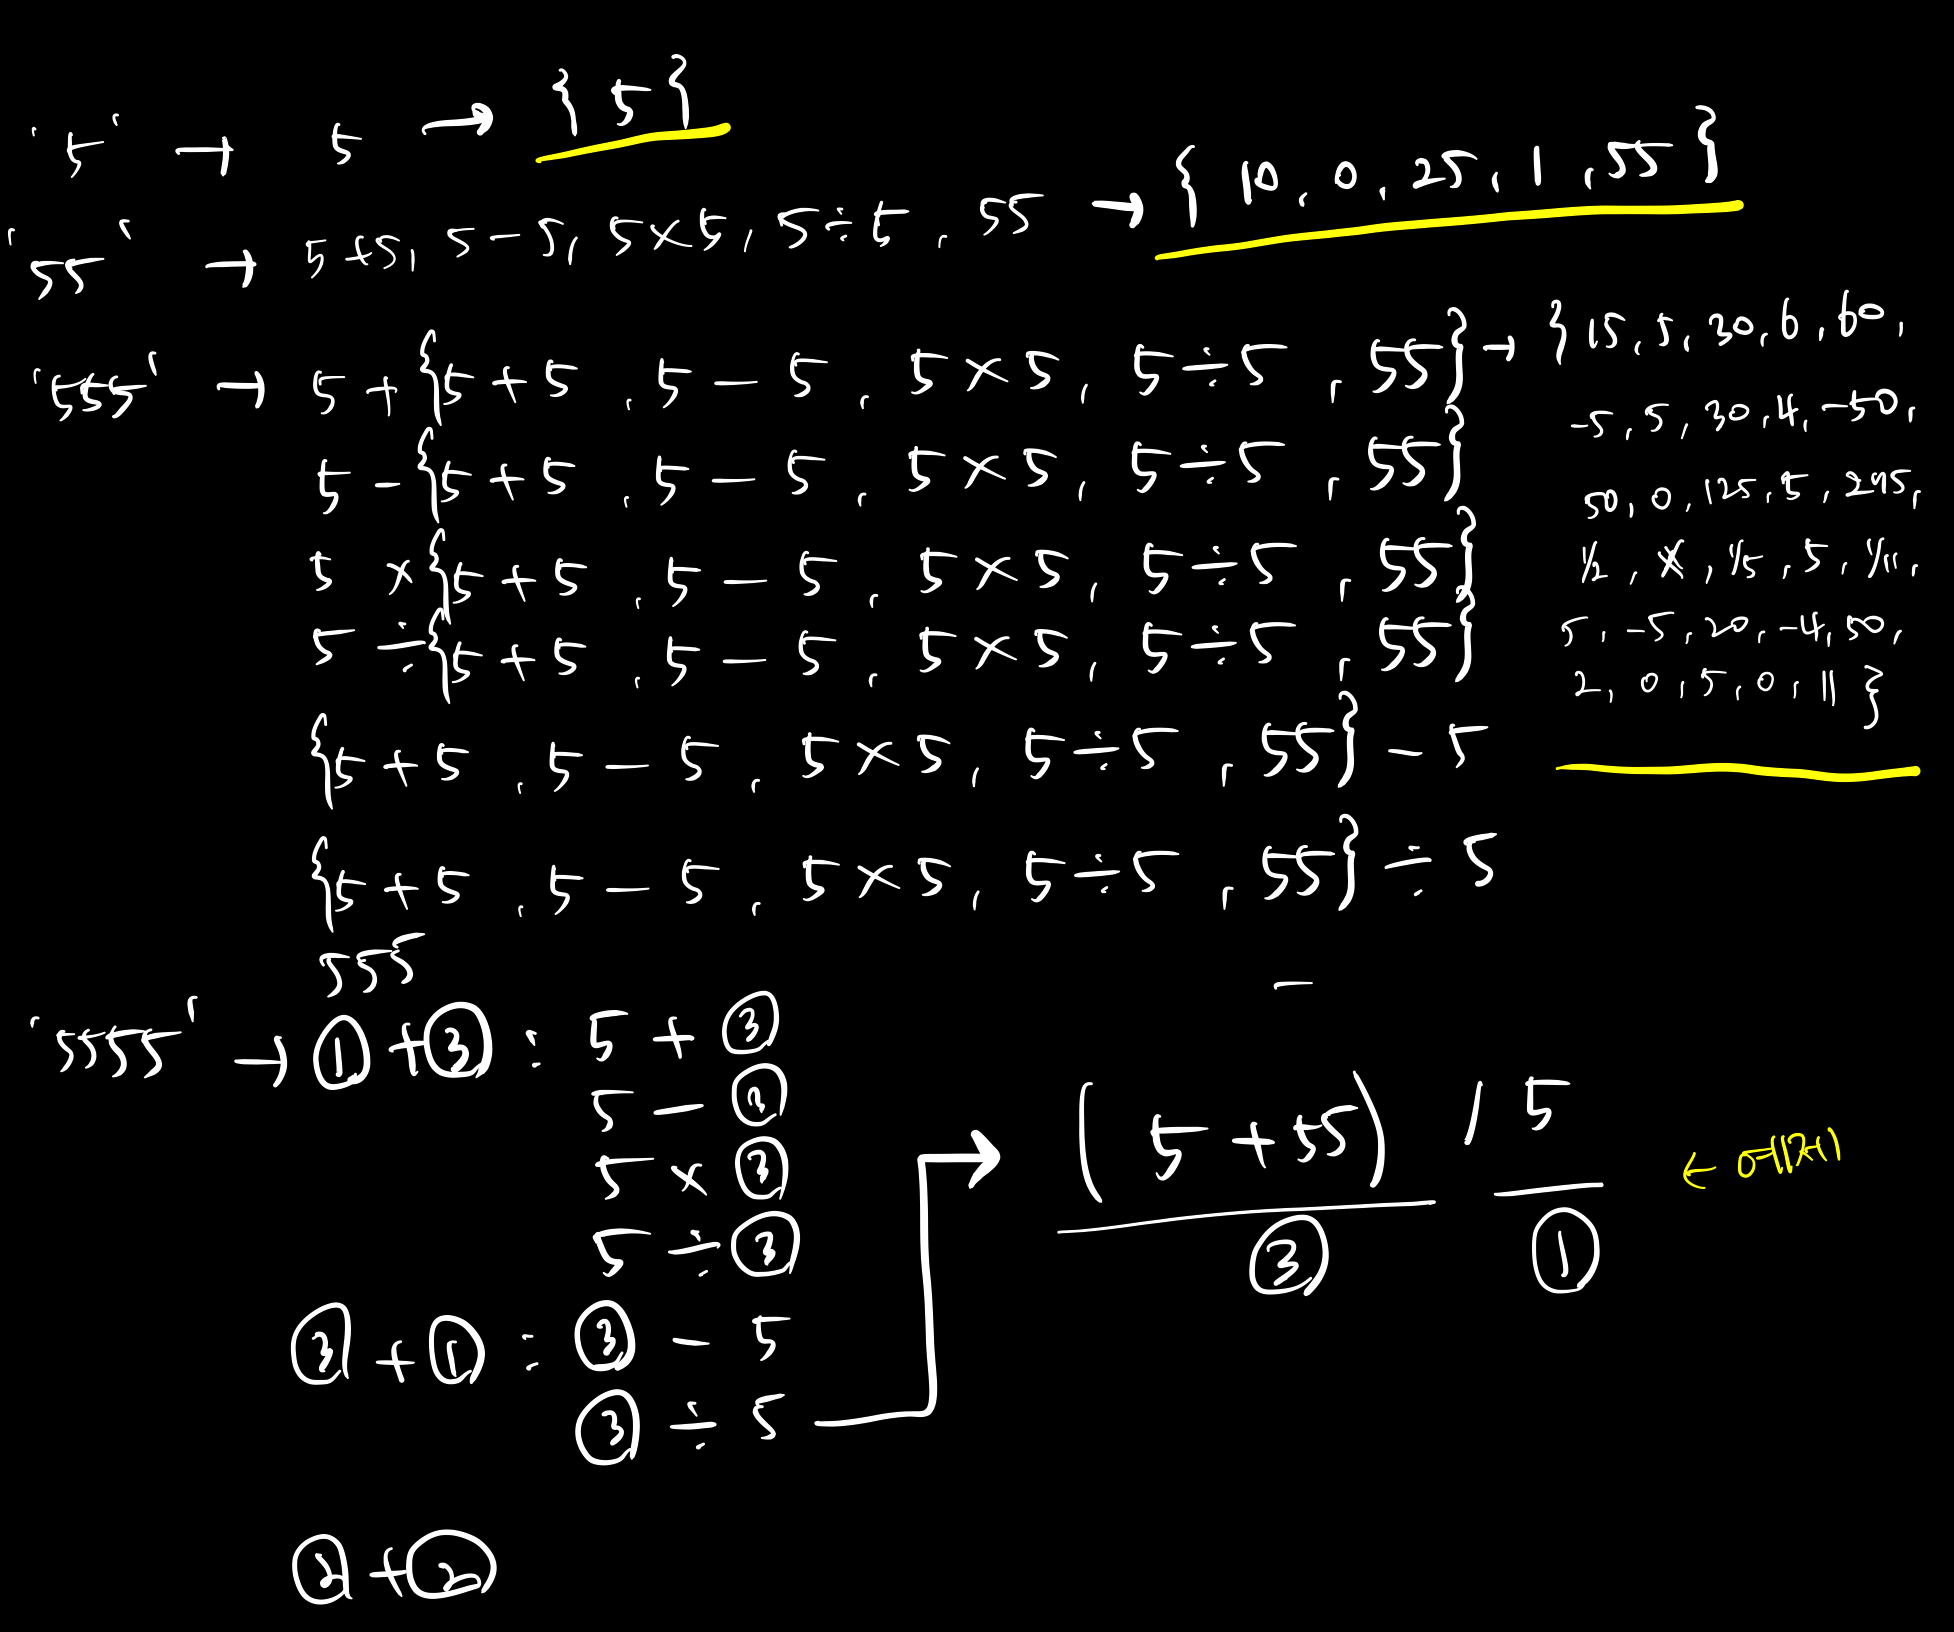 '5' → 5 → { 5 }
'55' → 5+5, 5-5, 5×5, 5÷5, 55 → { 10, 0, 25, 1, 55 }
'555' → 5 + {5+5, 5-5, 5×5, 5÷5, 55} → { 15, 5, 30, 6, 60,
5 - {5+5, 5-5, 5×5, 5÷5, 55} -5, 5, 30, 4, -50,
5 × {5+5, 5-5, 5×5, 5÷5, 55} 50, 0, 125, 5,
5 ÷ {5+5, 5-5, 5×5, 5÷5, 55} 1/2, X, 1/5, 5, 1/11,
5, -5, 20, -4, 50,
2, 0, 5, 0, 11 }
{5+5, 5-5, 5×5, 5÷5, 55} - 5
{5+5, 5-5, 5×5, 5÷5, 55} ÷ 5
555
'5555' → ① + ③ : 5 + ③
5 - ③
5 × ③
5 ÷ ③
③ + ① : ③ - 5
③ ÷ 5 → (5 + 55) / 5
③ ①
② + ②